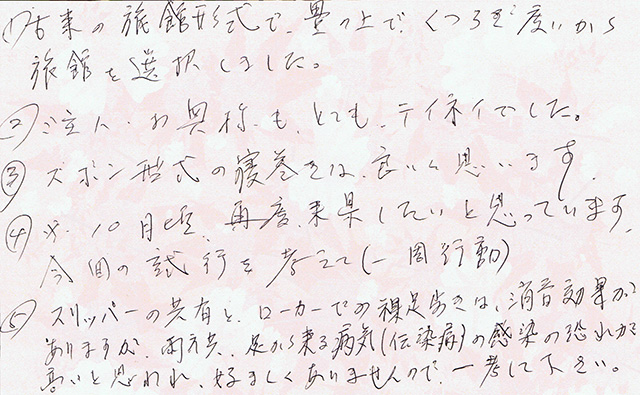 ① 古来の旅館形式で、畳の上で、くつろぎ度いから
旅館を選択しました。
② ご主人・お奥様も、とても、テイネイでした。
③ ズボン型式の寝巻きは、良いと思います。
④ 10月頃、再度、来県したいと思っています。
今回の試行を考えて(一周行動)
⑤ スリッパーの共有と、ローカーでの裸足歩きは、消音効果が
ありますが、両方共、足から来る病気(伝染病)の感染の恐れが
高いと思われ、好ましくありませんので、一考して下さい。